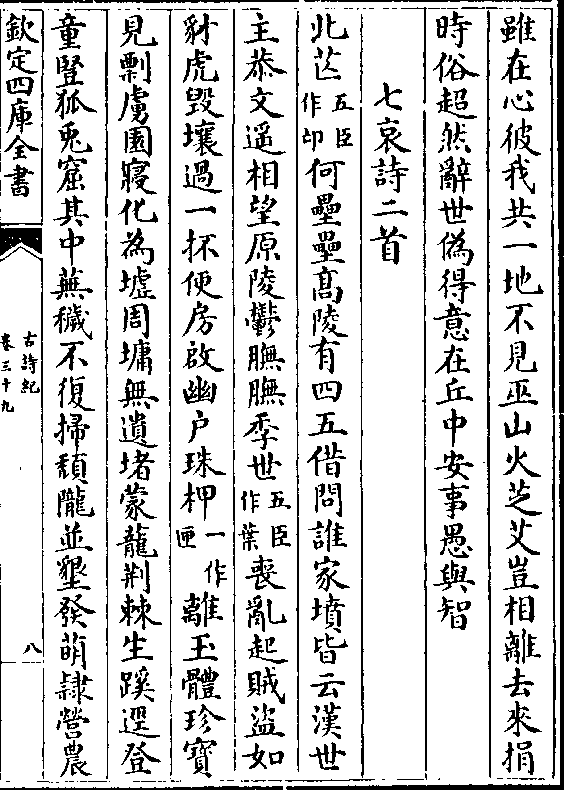 雖在心彼我共一地不見巫山火芝艾豈相離去來捐
時俗超然辭世偽得意在丘中安事愚與智
七哀詩二首
北芒五臣作邙何壘壘髙陵有四五借問誰家墳皆云漢世
主恭文遥相望原陵鬱膴膴季世五臣作葉喪亂起賊盜如
豺虎毀壤過一抔便房啟幽户珠柙一作匣離玉體珍寶
見剽虜園寢化為墟周墉無遺堵蒙蘢荆棘生蹊逕登
童豎狐兎窟其中蕪穢不復掃頽隴並墾發萌隷營農
欽定四庫全書
古詩紀
卷三十九
八